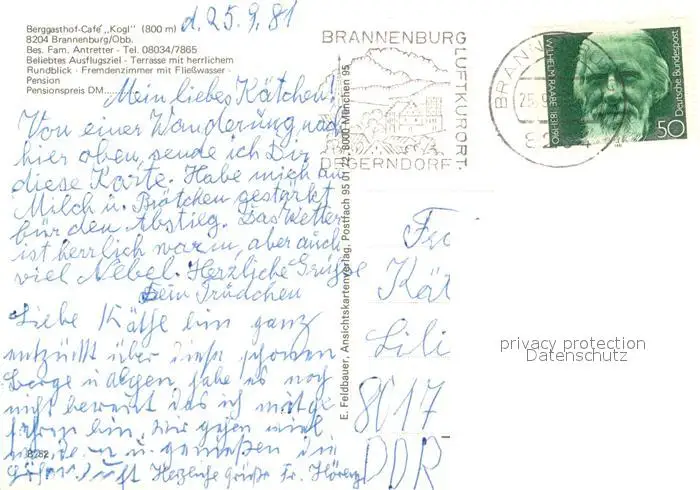 d. 25.9.81
Berggasthof-Café „Kogl" (800 m)
8204 Brannenburg/Obb.
Bes. Fam. Antretter - Tel. 08034/7865
Beliebtes Ausflugsziel - Terrasse mit herrlichem
Rundblick - Fremdenzimmer mit Fließwasser -
Pension
Pensionspreis DM
Mein liebes Kätchen!
Von einer Wanderung nach
hier oben, sende ich Dir
diese Karte. Habe mich an
Milch u. Brötchen gestärkt
für den Abstieg. Das Wetter
ist herrlich warm, aber auch
viel Nebel. Herzliche Grüsse
Dein Trüdchen
Liebe Käthe bin ganz
entzückt über diese schönen
Berge u.
nicht bereut das ich mitge
fahren bin, wir gehen viel
u. genießen die
Luft Herzliche Grüße Fr.
8782
E. Feldbauer, Ansichtskartenverlag, Postfach 95 01 72, 8000 München 95
BRANNENBURG
LUFTKURORT
DEGERNDORF
BRANN
25.9
82 4
WILHELM RAABE 1831-1910
Deutsche Bundespost
50
Fr
Kät
Lili
8017
DDR
privacy protection
Datenschutz